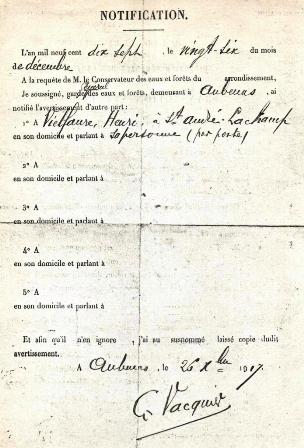 NOTIFICATION.
L'an mil neuf cent dix sept, le vingt-six du mois
de décembre
A la requête de M. le Conservateur des eaux et forêts du arrondissement,
Je soussigné, garde des eaux et forêts, demeurant à Aubenas, ai
notifié l'avertissement d'autre part :
1° A Vielfaure, Henri, à St André-Lachamp
en son domicile et parlant à sa personne (par poste)
2° A
en son domicile et parlant à
3° A
en son domicile et parlant à
4° A
en son domicile et parlant à
5° A
en son domicile et parlant à
Et afin qu'il n'en ignore, j'ai au susnommé laissé copie dudit
avertissement.
A Aubenas, le 26 Xbre 1917.
G. Vacquier